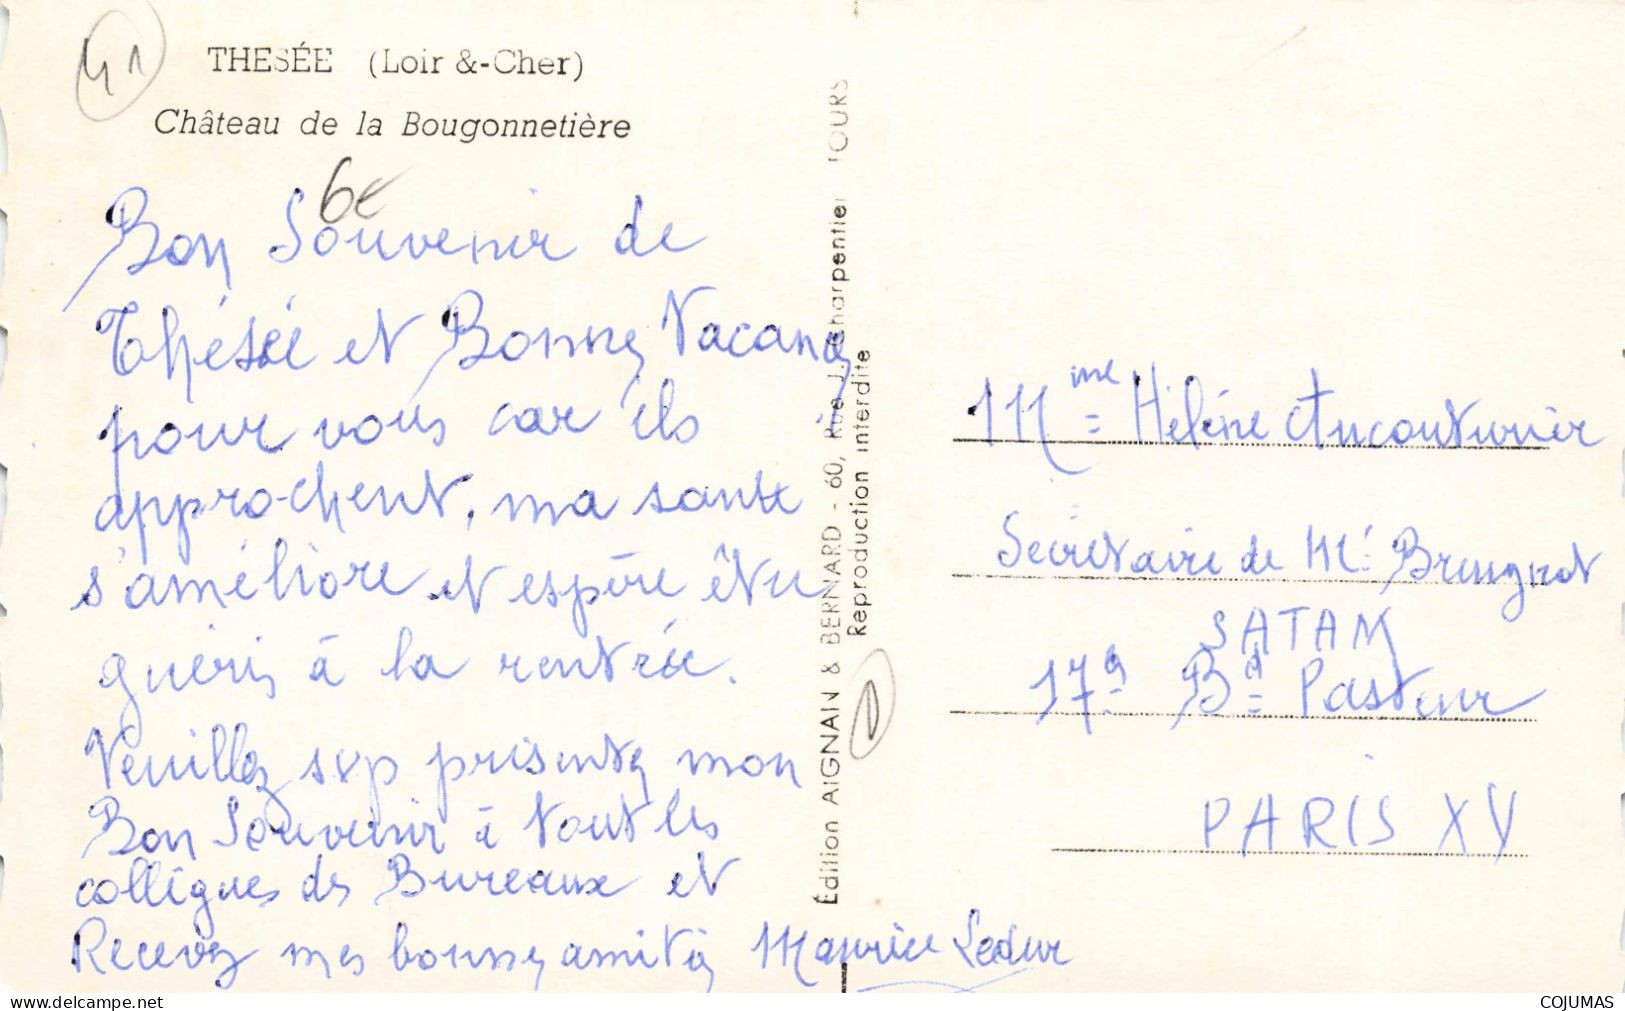 41
THESÉE (Loir &-Cher)
Château de la Bougonnetière
6€
Bon Souvenir de
Thésée et Bonnes Vacances
pour vous car ils
approchent, ma santé
s'améliore et espère être
guéris à la rentrée.
Veuillez svp présentez mon
Bon Souvenir à tout les
collègues des Bureaux et
Recevez mes bonnes amitiés Maurice Ledur
Édition AIGNAN & BERNARD - 60, Rue J. Charpentier TOURS
Reproduction interdite
Mme Hélène Aucouturier
Secrétaire de Mr Breugnot
SATAM
17 Bd Pasteur
PARIS XV
COJUMAS